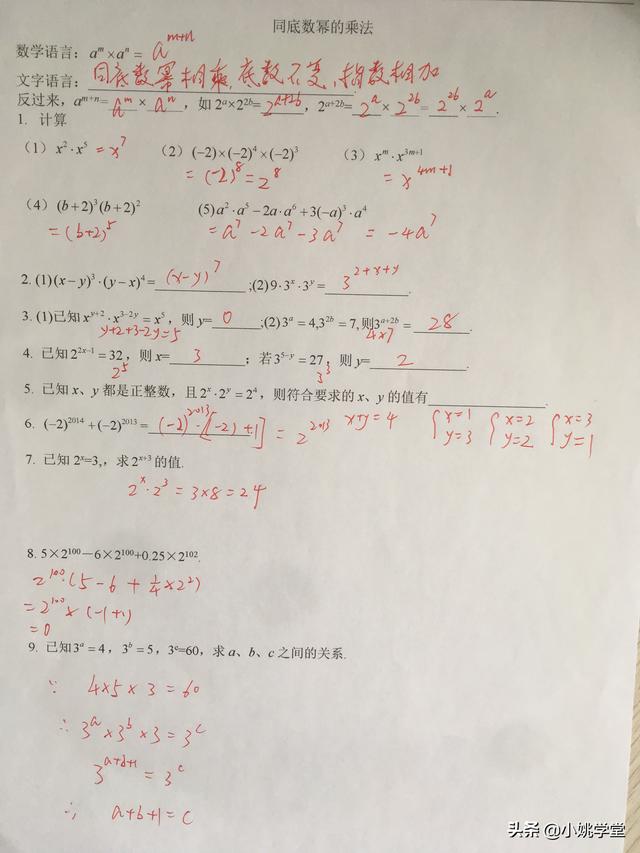 同底数幂的乘法
数学语言：a^m×a^n = a^{m+n}
文字语言：同底数幂相乘，底数不变，指数相加
反过来，a^{m+n}= a^m × a^n ，如 2^a×2^{2b}= 2^{a+2b}，2^{a+2b}= 2^a × 2^{2b} = 2^{2b} × 2^a .
1. 计算
（1）x^2·x^5 = x^7 （2）(−2)×(−2)^4×(−2)^3 （3）x^m·x^{3m+1}
= (−2)^8 = 2^8 = x^{4m+1}
（4）(b+2)^3(b+2)^2 (5) a^2·a^5−2a·a^6+3(−a)^3·a^4
= (b+2)^5 = a^7 − 2a^7 − 3a^7 = −4a^7
2. (1) (x−y)^3·(y−x)^4 = (x−y)^7 ;(2) 9·3^x·3^y = 3^{2+x+y} .
3. (1)已知 x^{y+2}·x^{3−2y} = x^5，则 y= 0 ;(2) 3^a = 4,3^{2b} = 7,则3^{a+2b} = 28 .
y+2+3−2y=5 4×7
4. 已知 2^{2x−1} = 32，则 x= 3 ；若 3^{5−y} = 27，则 y= 2 .
2^5 3^3
5. 已知 x、y 都是正整数，且 2^x·2^y = 2^4，则符合要求的 x、y 的值有 .
x+y=4 {x=1 y=3 {x=2 y=2 {x=3 y=1
6. (−2)^{2014}+(−2)^{2013} = (−2)^{2013}·[(−2)+1] = 2^{2013}
7. 已知 2^x=3,，求 2^{x+3} 的值.
2^x·2^3 = 3×8 = 24
8. 5×2^{100}−6×2^{100}+0.25×2^{102}.
2^{100}·(5−6+1/4×2^2)
= 2^{100}×(−1+1)
= 0
9. 已知 3^a = 4，3^b = 5，3^c=60，求 a、b、c 之间的关系.
∵ 4×5×3 = 60
∴ 3^a×3^b×3 = 3^c
3^{a+b+1} = 3^c
∴ a+b+1=c
头条 @小姚学堂